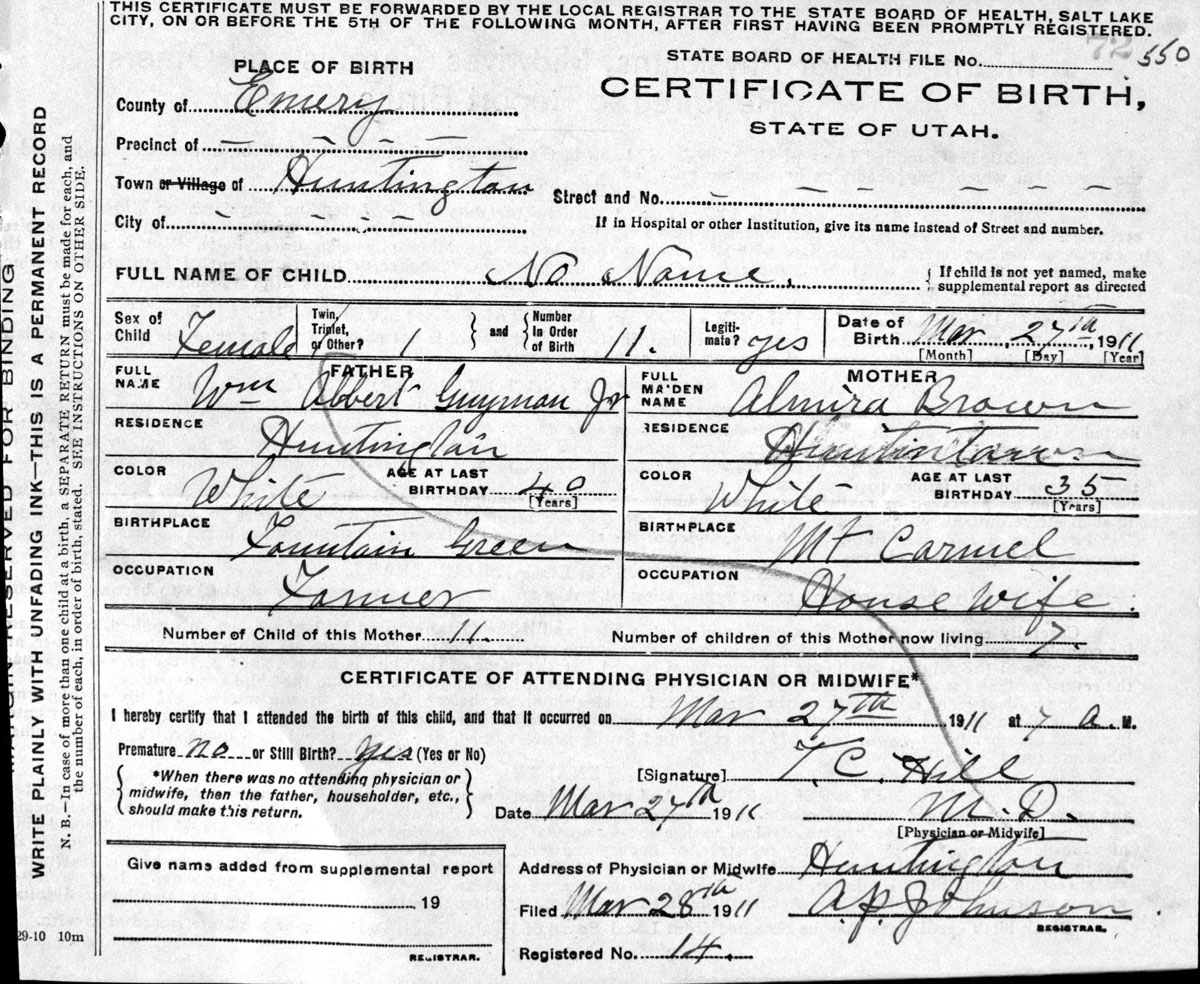 THIS CERTIFICATE MUST BE FORWARDED BY THE LOCAL REGISTRAR TO THE STATE BOARD OF HEALTH, SALT LAKE
CITY, ON OR BEFORE THE 5TH OF THE FOLLOWING MONTH, AFTER FIRST HAVING BEEN PROMPTLY REGISTERED.
72 550
STATE BOARD OF HEALTH FILE No.
PLACE OF BIRTH
CERTIFICATE OF BIRTH,
STATE OF UTAH.
County of Emery
Precinct of – – – – –
Town or Village of Huntington
Street and No. – – – – – –
City of – – – –
If in Hospital or other Institution, give its name instead of Street and number.
FULL NAME OF CHILD No Name.
{ If child is not yet named, make
supplemental report as directed
Sex of Child Female
Twin, Triplet, or Other? 1 } and { Number In Order of Birth 11.
Legiti-mate? yes
Date of Birth Mar 27th 1911
[Month] [Day] [Year]
FATHER
FULL NAME Wm Albert Guymon Jr
RESIDENCE Huntington
COLOR White AGE AT LAST BIRTHDAY 40
[Years]
BIRTHPLACE Fountain Green
OCCUPATION Farmer
MOTHER
FULL MAIDEN NAME Almira Brown
RESIDENCE Huntington
COLOR White AGE AT LAST BIRTHDAY 35
[Years]
BIRTHPLACE Mt Carmel
OCCUPATION House Wife.
Number of Child of this Mother 11. Number of children of this Mother now living 7.
CERTIFICATE OF ATTENDING PHYSICIAN OR MIDWIFE*
I hereby certify that I attended the birth of this child, and that it occurred on Mar 27th 1911 at 7 a. M.
Premature no or Still Birth? yes (Yes or No)
{ *When there was no attending physician or
midwife, then the father, householder, etc.,
should make this return. }
[Signature] T. C. Hill
Date Mar 27th 1911 M. D.
[Physician or Midwife]
Give name added from supplemental report
19
REGISTRAR.
Address of Physician or Midwife Huntington
Filed Mar 28th 1911 A. P. Johnson.
REGISTRAR.
Registered No. 14.
29-10 10m
MARGIN RESERVED FOR BINDING
WRITE PLAINLY WITH UNFADING INK—THIS IS A PERMANENT RECORD
N. B.—In case of more than one child at a birth, a SEPARATE RETURN must be made for each, and
the number of each, in order of birth, stated. SEE INSTRUCTIONS ON OTHER SIDE.